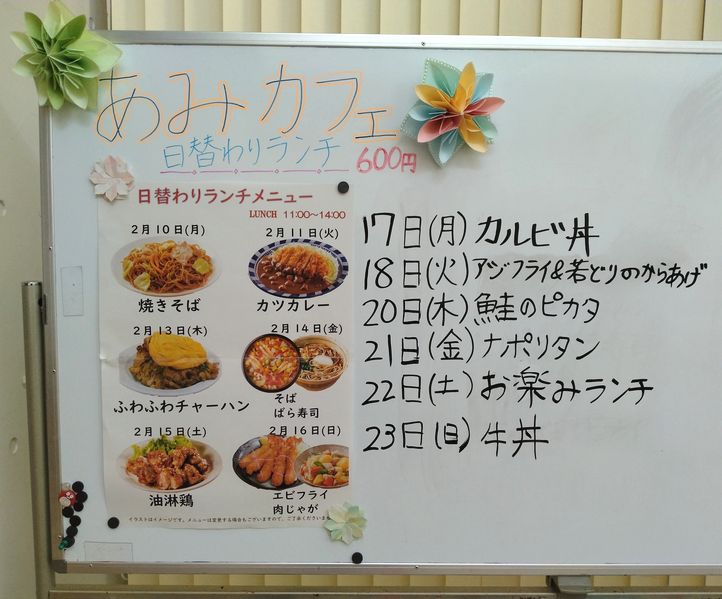 あみカフェ
日替わりランチ 600円
日替わりランチメニュー
LUNCH 11:00~14:00
2月10日(月) 2月11日(火)
焼きそば カツカレー
2月13日(木) 2月14日(金)
ふわふわチャーハン そば
ばら寿司
2月15日(土) 2月16日(日)
油淋鶏 エビフライ
肉じゃが
イラストはイメージです。メニューは変更する場合もございますので、ご了承くださいませ
17日(月) カルビ丼
18日(火) アジフライ&若どりのからあげ
20日(木) 鮭のピカタ
21日(金) ナポリタン
22日(土) お楽みランチ
23日(日) 牛丼